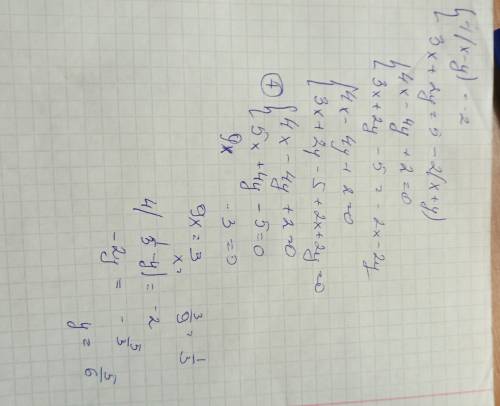 { 4(x-y) = -2
{ 3x+2y = 5 - 2(x+y)
{ 4x - 4y + 2 = 0
{ 3x + 2y - 5 = - 2x - 2y
{ 4x - 4y + 2 = 0
{ 3x + 2y - 5 + 2x + 2y = 0
+ { 4x - 4y + 2 = 0
{ 5x + 4y - 5 = 0
9x - 3 = 0
9x = 3
x = 3/9 = 1/3
4( 1/3 - y) = -2
-2y = - 5/3
y = 5/6